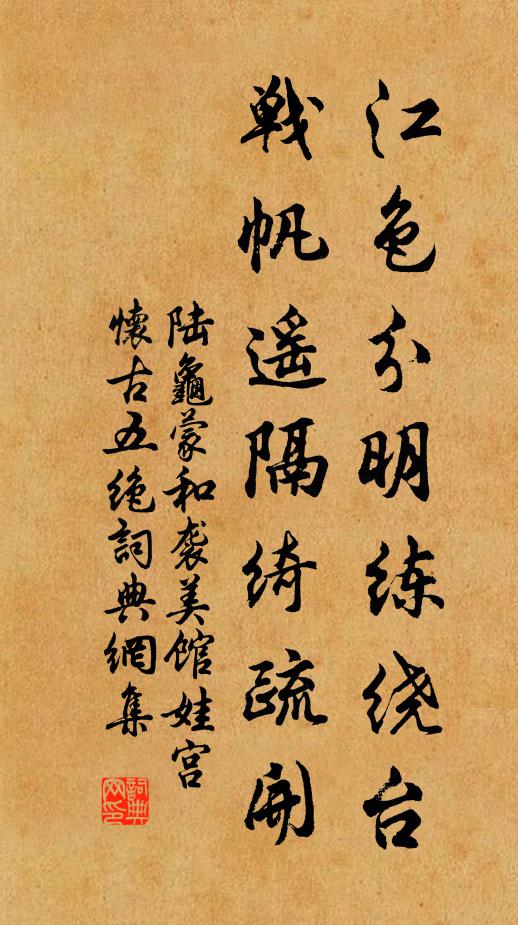 江色分明练绕台
戦帆遥隔綺疏開
陆龜蒙和袭美馆娃宫
懷古五绝詞典網集
詞典网印